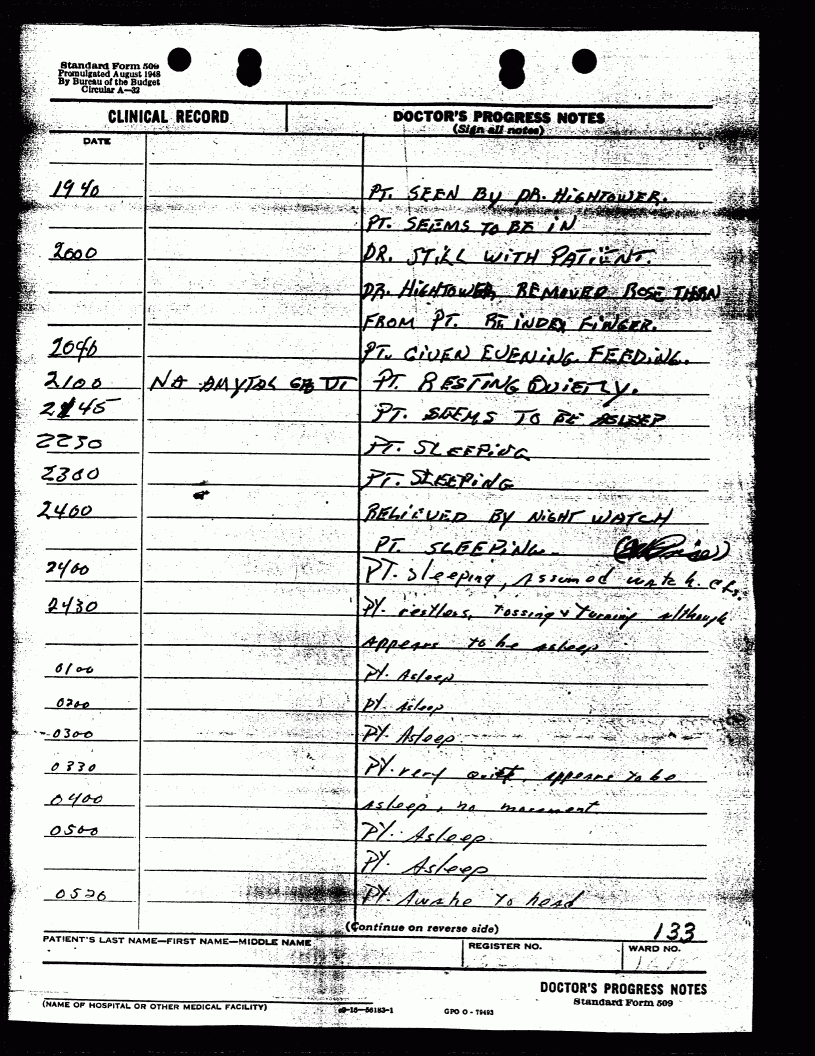 Standard Form 509
Promulgated August 1948
By Bureau of the Budget
Circular A—32
CLINICAL RECORD
DOCTOR'S PROGRESS NOTES
(Sign all notes)
DATE
1940 PT. SEEN BY DR. HIGHTOWER.
PT. SEEMS TO BE IN
2000 DR. STILL WITH PATIENT.
DR. HIGHTOWER REMOVED ROSE THORN
FROM PT. RT INDEX FINGER.
2040 PT. GIVEN EVENING FEEDING.
2100 NA AMYTAL GR VI PT. RESTING QUIETLY.
2145 PT. SEEMS TO BE ASLEEP
2230 PT. SLEEPING
2300 PT. SLEEPING
2400 RELIEVED BY NIGHT WATCH
PT. SLEEPING.
2400 PT. sleeping, Assumed watch.
2430 PT. restless, tossing & turning although
appears to be asleep
0100 PT. Asleep
0200 PT. Asleep
0300 PT. Asleep
0330 PT. very quiet, appears to be
0400 asleep, no movement
0500 PT. Asleep
PT. Asleep
0520 PT. Awake to head
(Continue on reverse side)
133
PATIENT'S LAST NAME—FIRST NAME—MIDDLE NAME
REGISTER NO.
WARD NO.
DOCTOR'S PROGRESS NOTES
Standard Form 509
(NAME OF HOSPITAL OR OTHER MEDICAL FACILITY)
c9-16—56183-1
GPO O - 79493